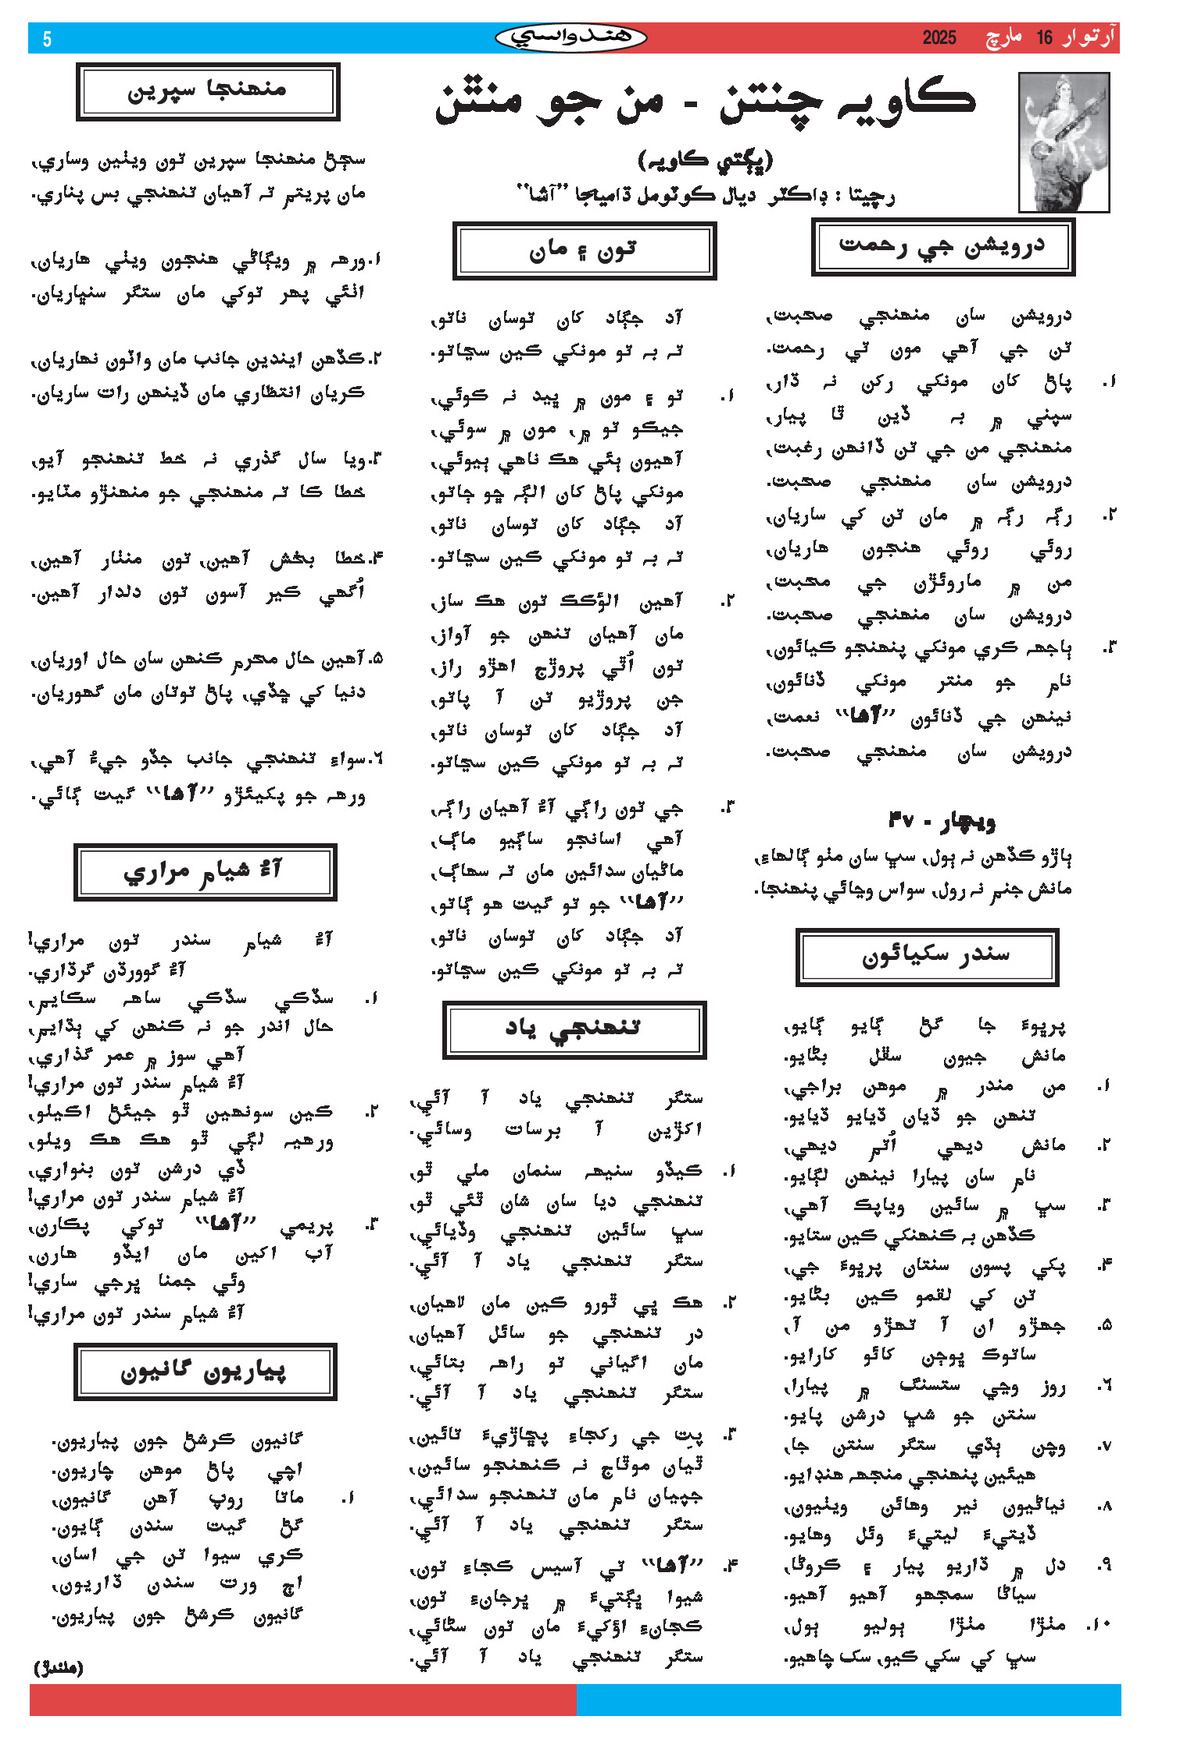 آرتوار 16 مارچ 2025
هندواسي
5
ڪاويہ چنتن - من جو منٿن
(ڀڳتي ڪاويہ)
رچيتا : ڊاڪٽر ديال ڪوٽومل ڌاميڄا ”آشا“
درويشن جي رحمت
درويشن سان منهنجي صحبت،
تن جي آهي مون تي رحمت.
۱. پاڻ کان مونکي رکن نہ ڌار،
سپني ۾ بہ ڏين ٿا پيار،
منهنجي من جي تن ڏانهن رغبت،
درويشن سان منهنجي صحبت.
۲. رڳہ رڳہ ۾ مان تن کي ساريان،
روئي روئي هنجون هاريان،
من ۾ ماروئڙن جي محبت،
درويشن سان منهنجي صحبت.
۳. ٻاجهہ ڪري مونکي پنهنجو ڪيائون،
نام جو منتر مونکي ڏنائون،
نينهن جي ڏنائون ”آشا“ نعمت،
درويشن سان منهنجي صحبت.
ويچار - ۴۷
ٻاڙو ڪڏهن نہ ٻول، سڀ سان مٺو ڳالهاءِ،
مانش جنم نہ رول، سواس وڃائي پنهنجا.
سندر سکيائون
پرڀوءَ جا گڻ ڳايو ڳايو،
مانش جيون سڦل بڻايو.
۱. من مندر ۾ موهن براجي،
تنهن جو ڌيان ڌيايو ڌيايو.
۲. مانش ديهي اُتم ديهي،
نام سان پيارا نينهن لڳايو.
۳. سڀ ۾ سائين وياپڪ آهي،
ڪڏهن بہ ڪنهنکي ڪين ستايو.
۴. پکي پسون سنتان پرڀوءَ جي،
تن کي لقمو ڪين بڻايو.
۵. جهڙو ان آ تهڙو من آ،
ساتوڪ ڀوڄن کائو کارايو.
۶. روز وڃي ستسنگ ۾ پيارا،
سنتن جو شڀ درشن پايو.
۷. وچن ٻڌي ستگر سنتن جا،
هيئين پنهنجي منجهہ هنڊايو.
۸. نياڻيون نير وهائن ويٺيون،
ڏيتيءَ ليتيءَ وئل وهايو.
۹. دل ۾ ڌاريو پيار ۽ ڪروڻا،
سياڻا سمجهو آهيو آهيو.
۱۰. مٺڙا مٺڙا ٻوليو ٻول،
سڀ کي سکي ڪيو، سک چاهيو.
تون ۽ مان
آد جڳاد کان توسان ناتو،
تہ بہ تو مونکي ڪين سڃاتو.
۱. تو ۽ مون ۾ ڀيد نہ ڪوئي،
جيڪو تو ۾، مون ۾ سوئي،
آهيون ٻئي هڪ ناهي ٻيوئي،
مونکي پاڻ کان الڳہ ڇو ڄاتو،
آد جڳاد کان توسان ناتو،
تہ بہ تو مونکي ڪين سڃاتو.
۲. آهين الؤڪڪ تون هڪ ساز،
مان آهيان تنهن جو آواز،
تون اُٿي پروڙج اهڙو راز،
جن پروڙيو تن آ پاتو،
آد جڳاد کان توسان ناتو،
تہ بہ تو مونکي ڪين سڃاتو.
۳. جي تون راڳي آءٌ آهيان راڳہ،
آهي اسانجو ساڳيو ماڳ،
ماڻيان سدائين مان تہ سهاڳ،
”آشا“ جو تو گيت هو ڳاتو،
آد جڳاد کان توسان ناتو،
تہ بہ تو مونکي ڪين سڃاتو.
تنهنجي ياد
ستگر تنهنجي ياد آ آئي،
اکڙين آ برسات وسائي.
۱. ڪيڏو سنيهہ سنمان ملي ٿو،
تنهنجي ديا سان شان ٿئي ٿو،
سڀ سائين تنهنجي وڏيائي،
ستگر تنهنجي ياد آ آئي.
۲. هڪ ڀي ٿورو ڪين مان لاهيان،
در تنهنجي جو سائل آهيان،
مان اگياني تو راهہ بتائي،
ستگر تنهنجي ياد آ آئي.
۳. پٺِ جي رکجاءِ پڇاڙيءَ تائين،
ٿيان موٿاج نہ ڪنهنجو سائين،
جپيان نام مان تنهنجو سدائي،
ستگر تنهنجي ياد آ آئي.
۴. ”آشا“ تي آسيس ڪجاءِ تون،
شيوا ڀڳتيءَ ۾ ڀرجانءِ تون،
ڪجانءِ اؤکيءَ مان تون سڻائي،
ستگر تنهنجي ياد آ آئي.
منهنجا سپرين
سڄڻ منهنجا سپرين تون ويٺين وساري،
مان پريتم تہ آهيان تنهنجي بس پناري.
۱.ورهہ ۾ ويڳاڻي هنجون ويٺي هاريان،
اٺئي پهر توکي مان ستگر سنڀاريان.
۲.ڪڏهن ايندين جانب مان واٽون نهاريان،
ڪريان انتظاري مان ڏينهن رات ساريان.
۳.ويا سال گذري نہ خط تنهنجو آيو،
خطا ڪا تہ منهنجي جو منهنڙو مٽايو.
۴.خطا بخش آهين، تون منٺار آهين،
اُگهي ڪير آسون تون دلدار آهين.
۵.آهين حال محرم ڪنهن سان حال اوريان،
دنيا کي ڇڏي، پاڻ توتان مان گهوريان.
۶.سواءِ تنهنجي جانب جڏو جيءُ آهي،
ورهہ جو پکيئڙو ”آشا“ گيت ڳائي.
آءٌ شيام مراري
آءٌ شيام سندر تون مراري!
آءٌ گوورڌن گرڌاري.
۱. سڏڪي سڏڪي ساهہ سڪايم،
حال اندر جو نہ ڪنهن کي ٻڌايم،
آهي سوز ۾ عمر گذاري،
آءٌ شيام سندر تون مراري!
۲. ڪين سونهين ٿو جيئڻ اڪيلو،
ورهيہ لڳي ٿو هڪ هڪ ويلو،
ڏي درشن تون بنواري،
آءٌ شيام سندر تون مراري!
۳. پريمي ”آشا“ توکي پڪارن،
آب اکين مان ايڏو هارن،
وئي جمنا ڀرجي ساري!
آءٌ شيام سندر تون مراري!
پياريون گانيون
گانيون ڪرشڻ جون پياريون.
اچي پاڻ موهن چاريون.
۱. ماتا روپ آهن گانيون،
گڻ گيت سندن ڳايون.
ڪري سيوا تن جي اسان،
اڄ ورت سندن ڌاريون،
گانيون ڪرشڻ جون پياريون.
(هلندڙ)